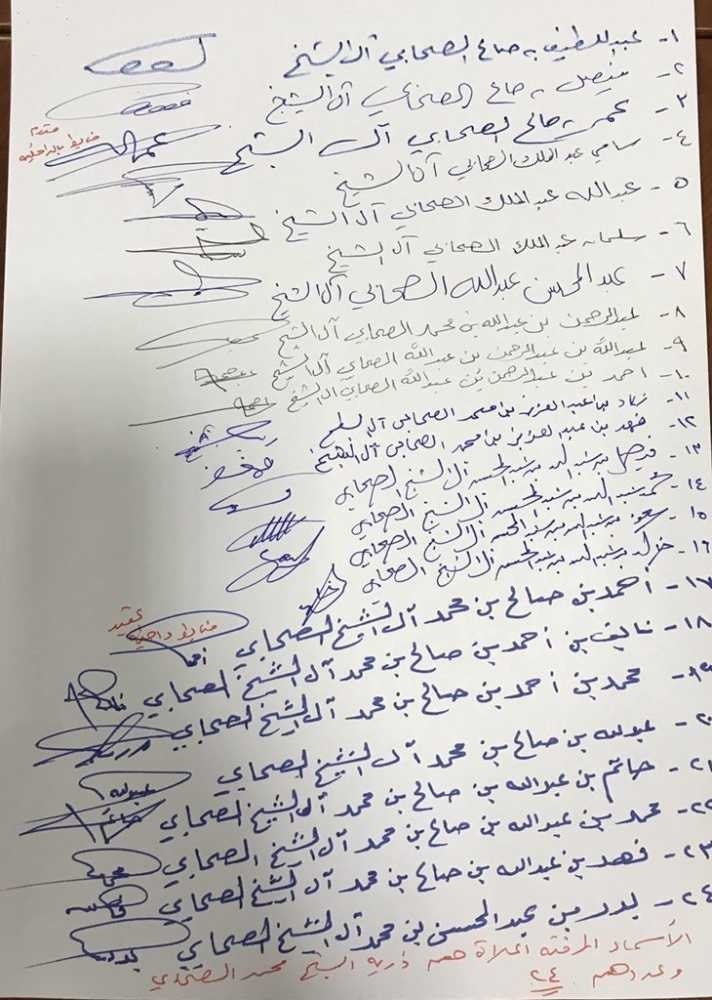 ١- عبداللطيف بن صالح الصحابي آل الشيخ
٢- فيصل بن صالح الصحابي آل الشيخ
٣- عمر بن صالح الصحابي آل الشيخ
مقدم
ضابط بالداخلية
٤- سامي عبدالملك الصحابي آل الشيخ
٥- عبدالله عبدالملك الصحابي آل الشيخ
٦- سلمان عبدالملك الصحابي آل الشيخ
٧- عبدالمحسن عبدالله الصحابي آل الشيخ
٨- عبدالرحمن بن عبدالله بن محمد الصحابي آل الشيخ
٩- عبدالله بن عبدالرحمن بن عبدالله الصحابي آل الشيخ
١٠- احمد بن عبدالرحمن بن عبدالله الصحابي آل الشيخ
١١- زياد بن عبدالعزيز بن محمد الصحابي آل الشيخ
١٢- فهد بن عبدالعزيز بن محمد الصحابي آل الشيخ
١٣- فيصل بن عبدالله بن عبدالمحسن آل الشيخ الصحابي
١٤- محمد بن عبدالله بن عبدالمحسن آل الشيخ الصحابي
١٥- سعود بن عبدالله بن عبدالمحسن آل الشيخ الصحابي
١٦- بن عبدالله بن عبدالمحسن آل الشيخ الصحابي
١٧- أحمد بن صالح بن محمد آل الشيخ الصحابي
عقيد
ضابط
١٨- نايف بن أحمد بن صالح بن محمد آل الشيخ الصحابي
١٩- محمد بن أحمد بن صالح بن محمد آل الشيخ الصحابي
٢٠- عبدالله بن صالح بن محمد آل الشيخ الصحابي
٢١- حاتم بن عبدالله بن صالح بن محمد آل الشيخ الصحابي
٢٢- محمد بن عبدالله بن صالح بن محمد آل الشيخ الصحابي
٢٣- فهد بن عبدالله بن صالح بن محمد آل الشيخ الصحابي
٢٤- بدر بن عبدالمحسن بن محمد آل الشيخ الصحابي
الأسماء المرفقة اعلاة هم ذرية الشيخ محمد الصحابي
وعددهم ٢٤